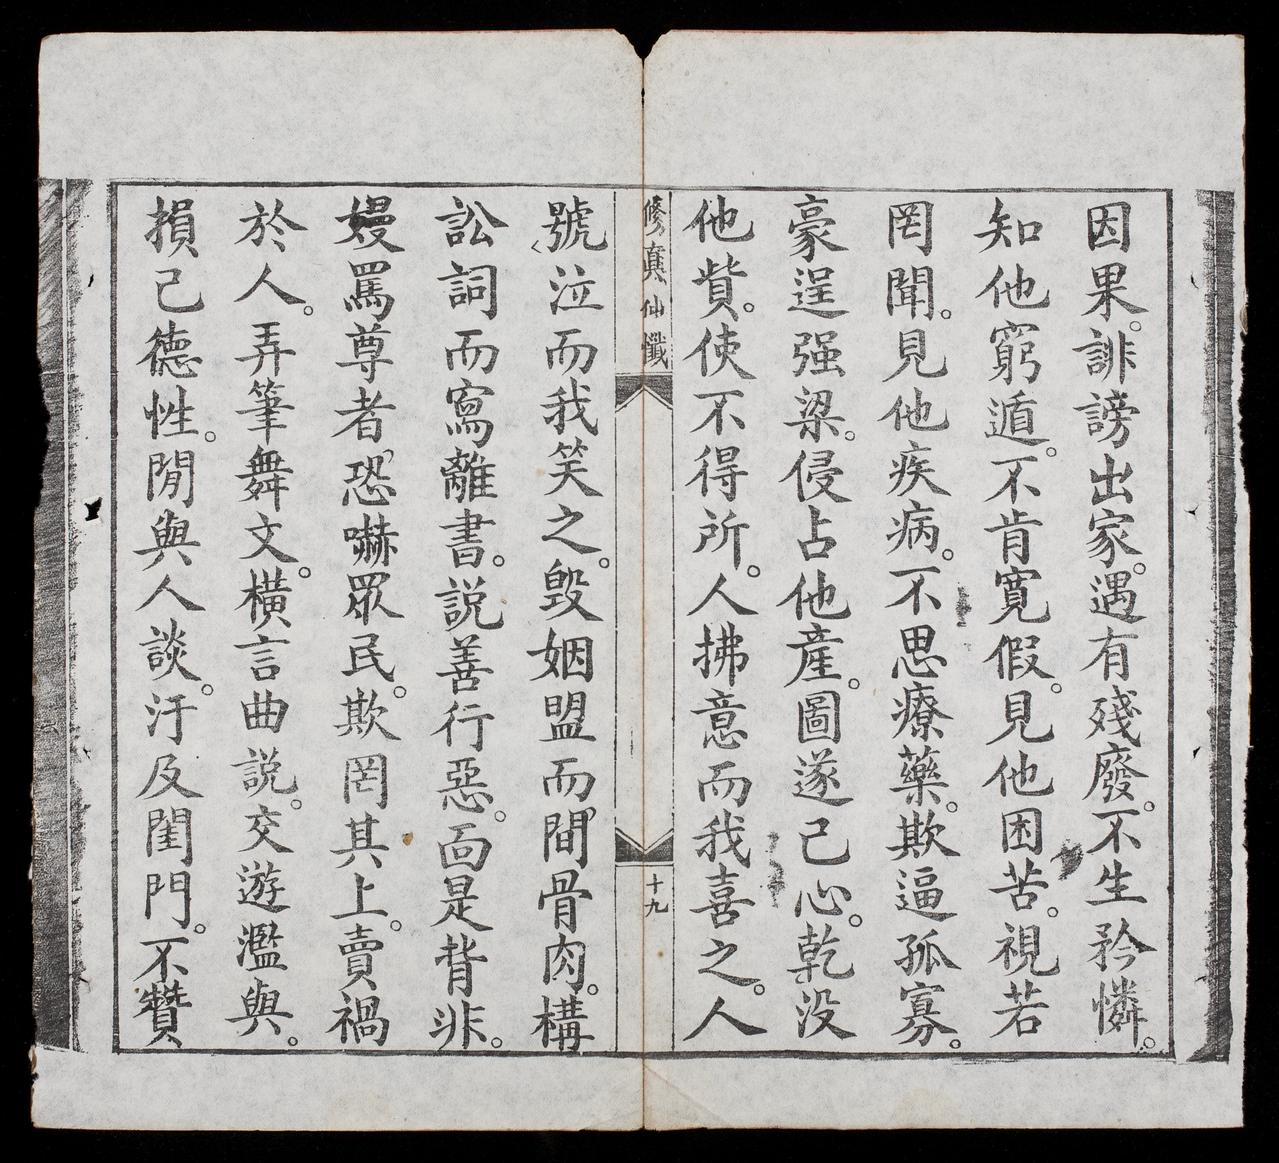 因果。誹謗出家。遇有殘廢。不生矜憐。
知他窮遁。不肯寬假。見他困苦。視若
罔聞。見他疾病。不思療藥。欺逼孤寡。
豪逞强梁。侵占他產。圖遂己心。乾没
他貲。使不得所。人拂意而我喜之。人
修真仙懺
十九
號泣而我笑之。毀姻盟而間骨肉。構
訟詞而寫離書。説善行惡。面是背非。
嫚罵尊者。恐嚇眾民。欺罔其上。賣禍
於人。弄筆舞文。橫言曲説。交遊濫與。
損己德性。閒與人談。汙及閨門。不贊